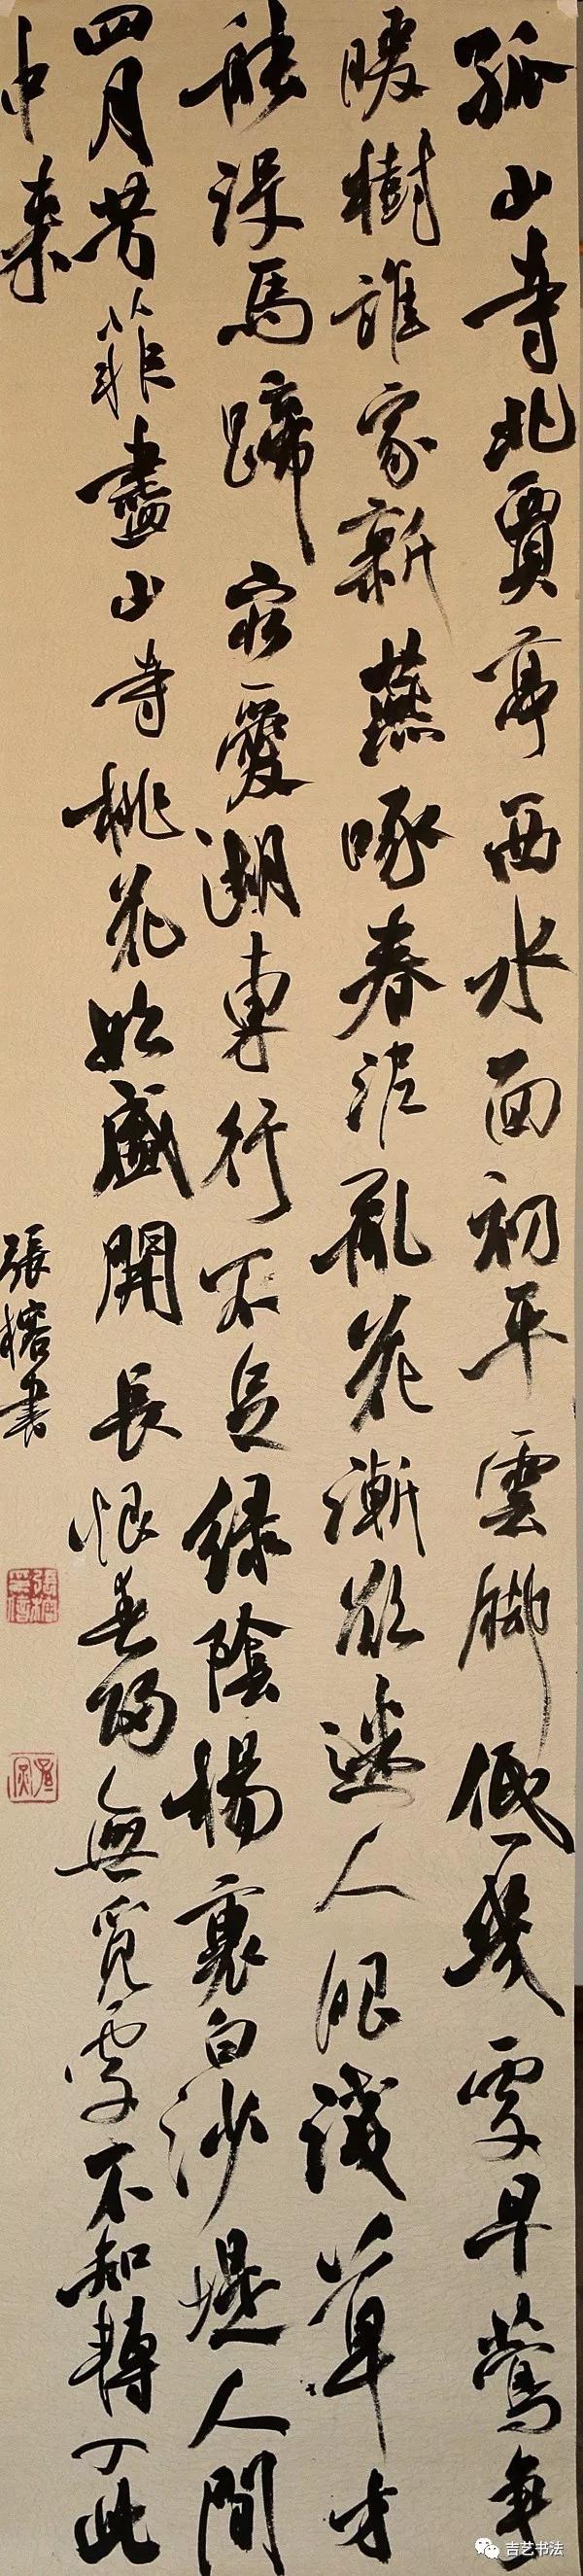 孤山寺北賈亭西水面初平雲脚低幾處早鶯争
暖樹誰家新燕啄春泥亂花漸欲迷人眼淺草才
能没馬蹄最愛湖東行不足绿陰楊裏白沙堤人間
四月芳菲盡山寺桃花始盛開長恨春歸無覓處不知轉入此
中來
張榕書
吉艺书法